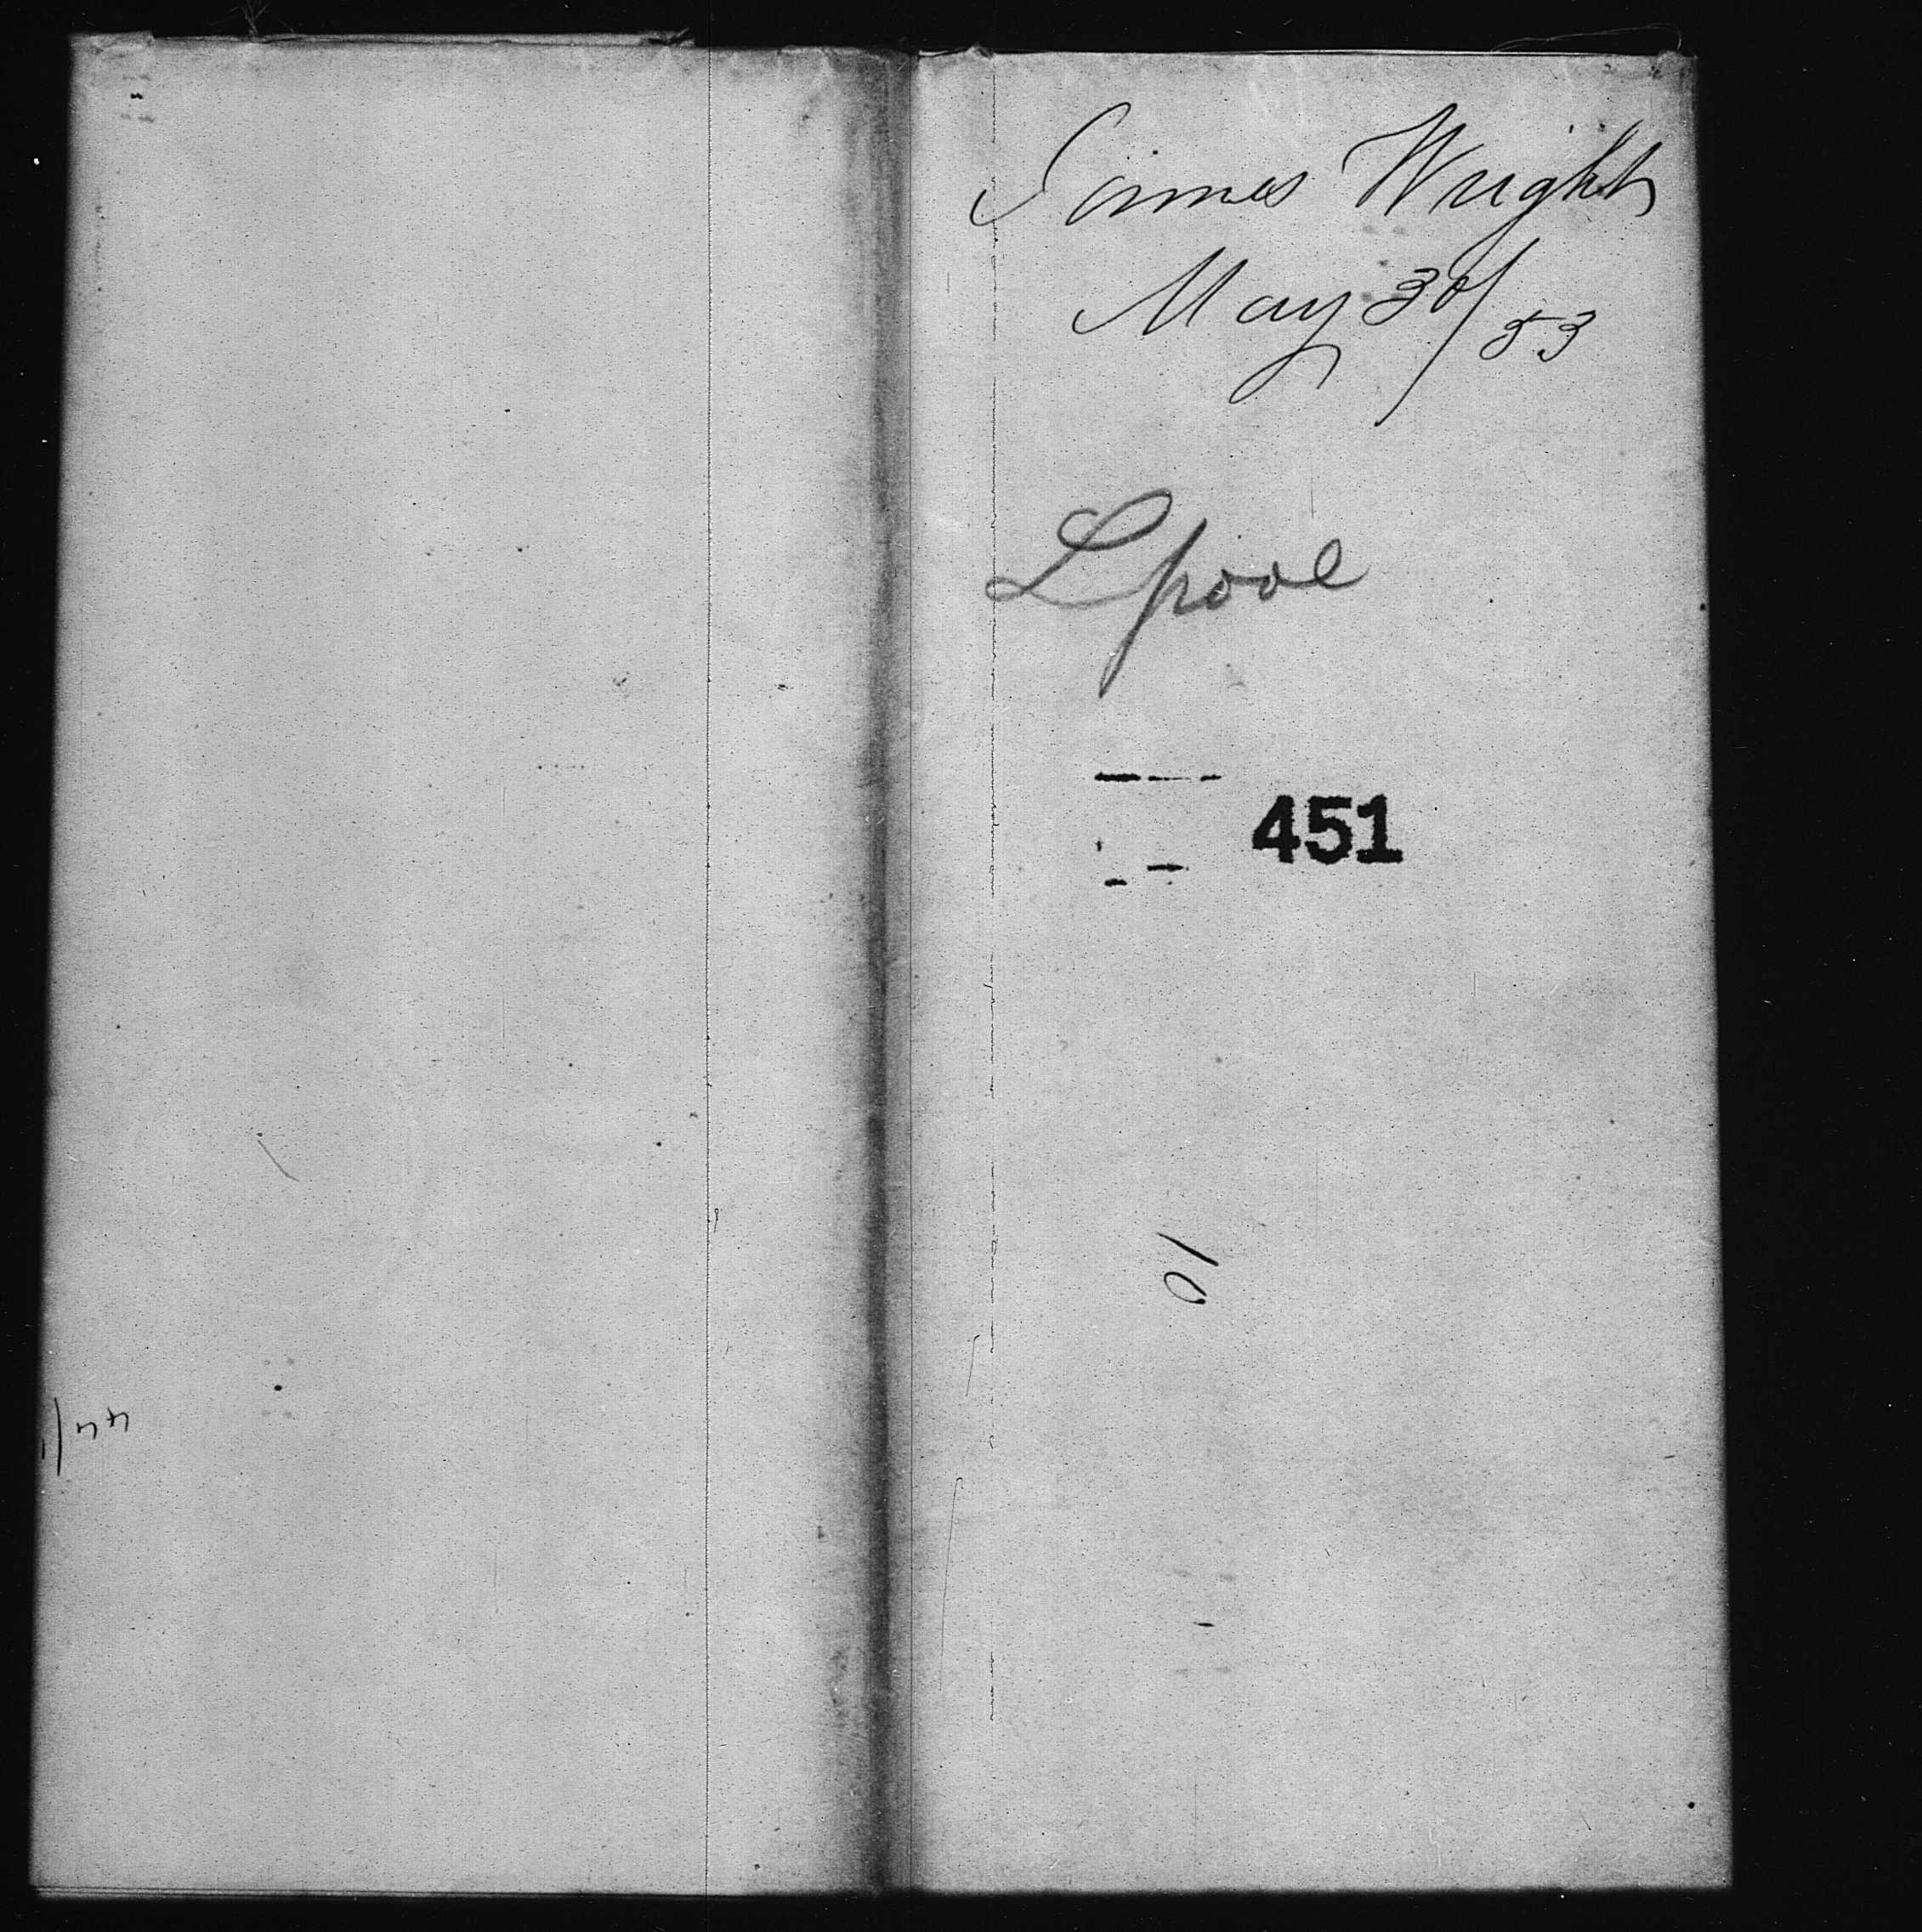 James Wright
May 30/53
Lpool
451
10